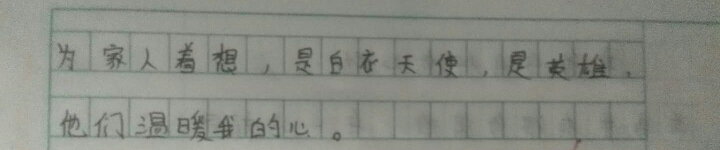 为家人着想，是白衣天使，是英雄，
他们温暖我的心。